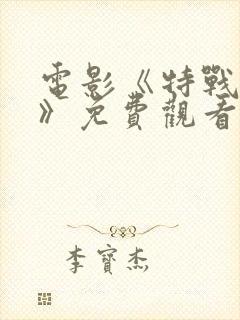 電影《特戰
》免費觀看
李寶杰